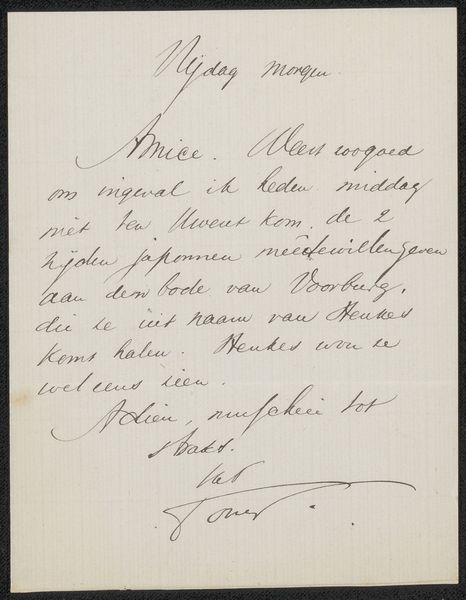 Vrijdag morgen
Amice. Weest zoo goed
om ingeval ik heden middag
niet ten Uwent kom, de 2
zijden japonnen mee te willen geven
aan den bode van Voorburg,
die ze uit naam van Henkes
komt halen. Henkes wou ze
wel eens zien.
Adieu, misschien tot
straks.